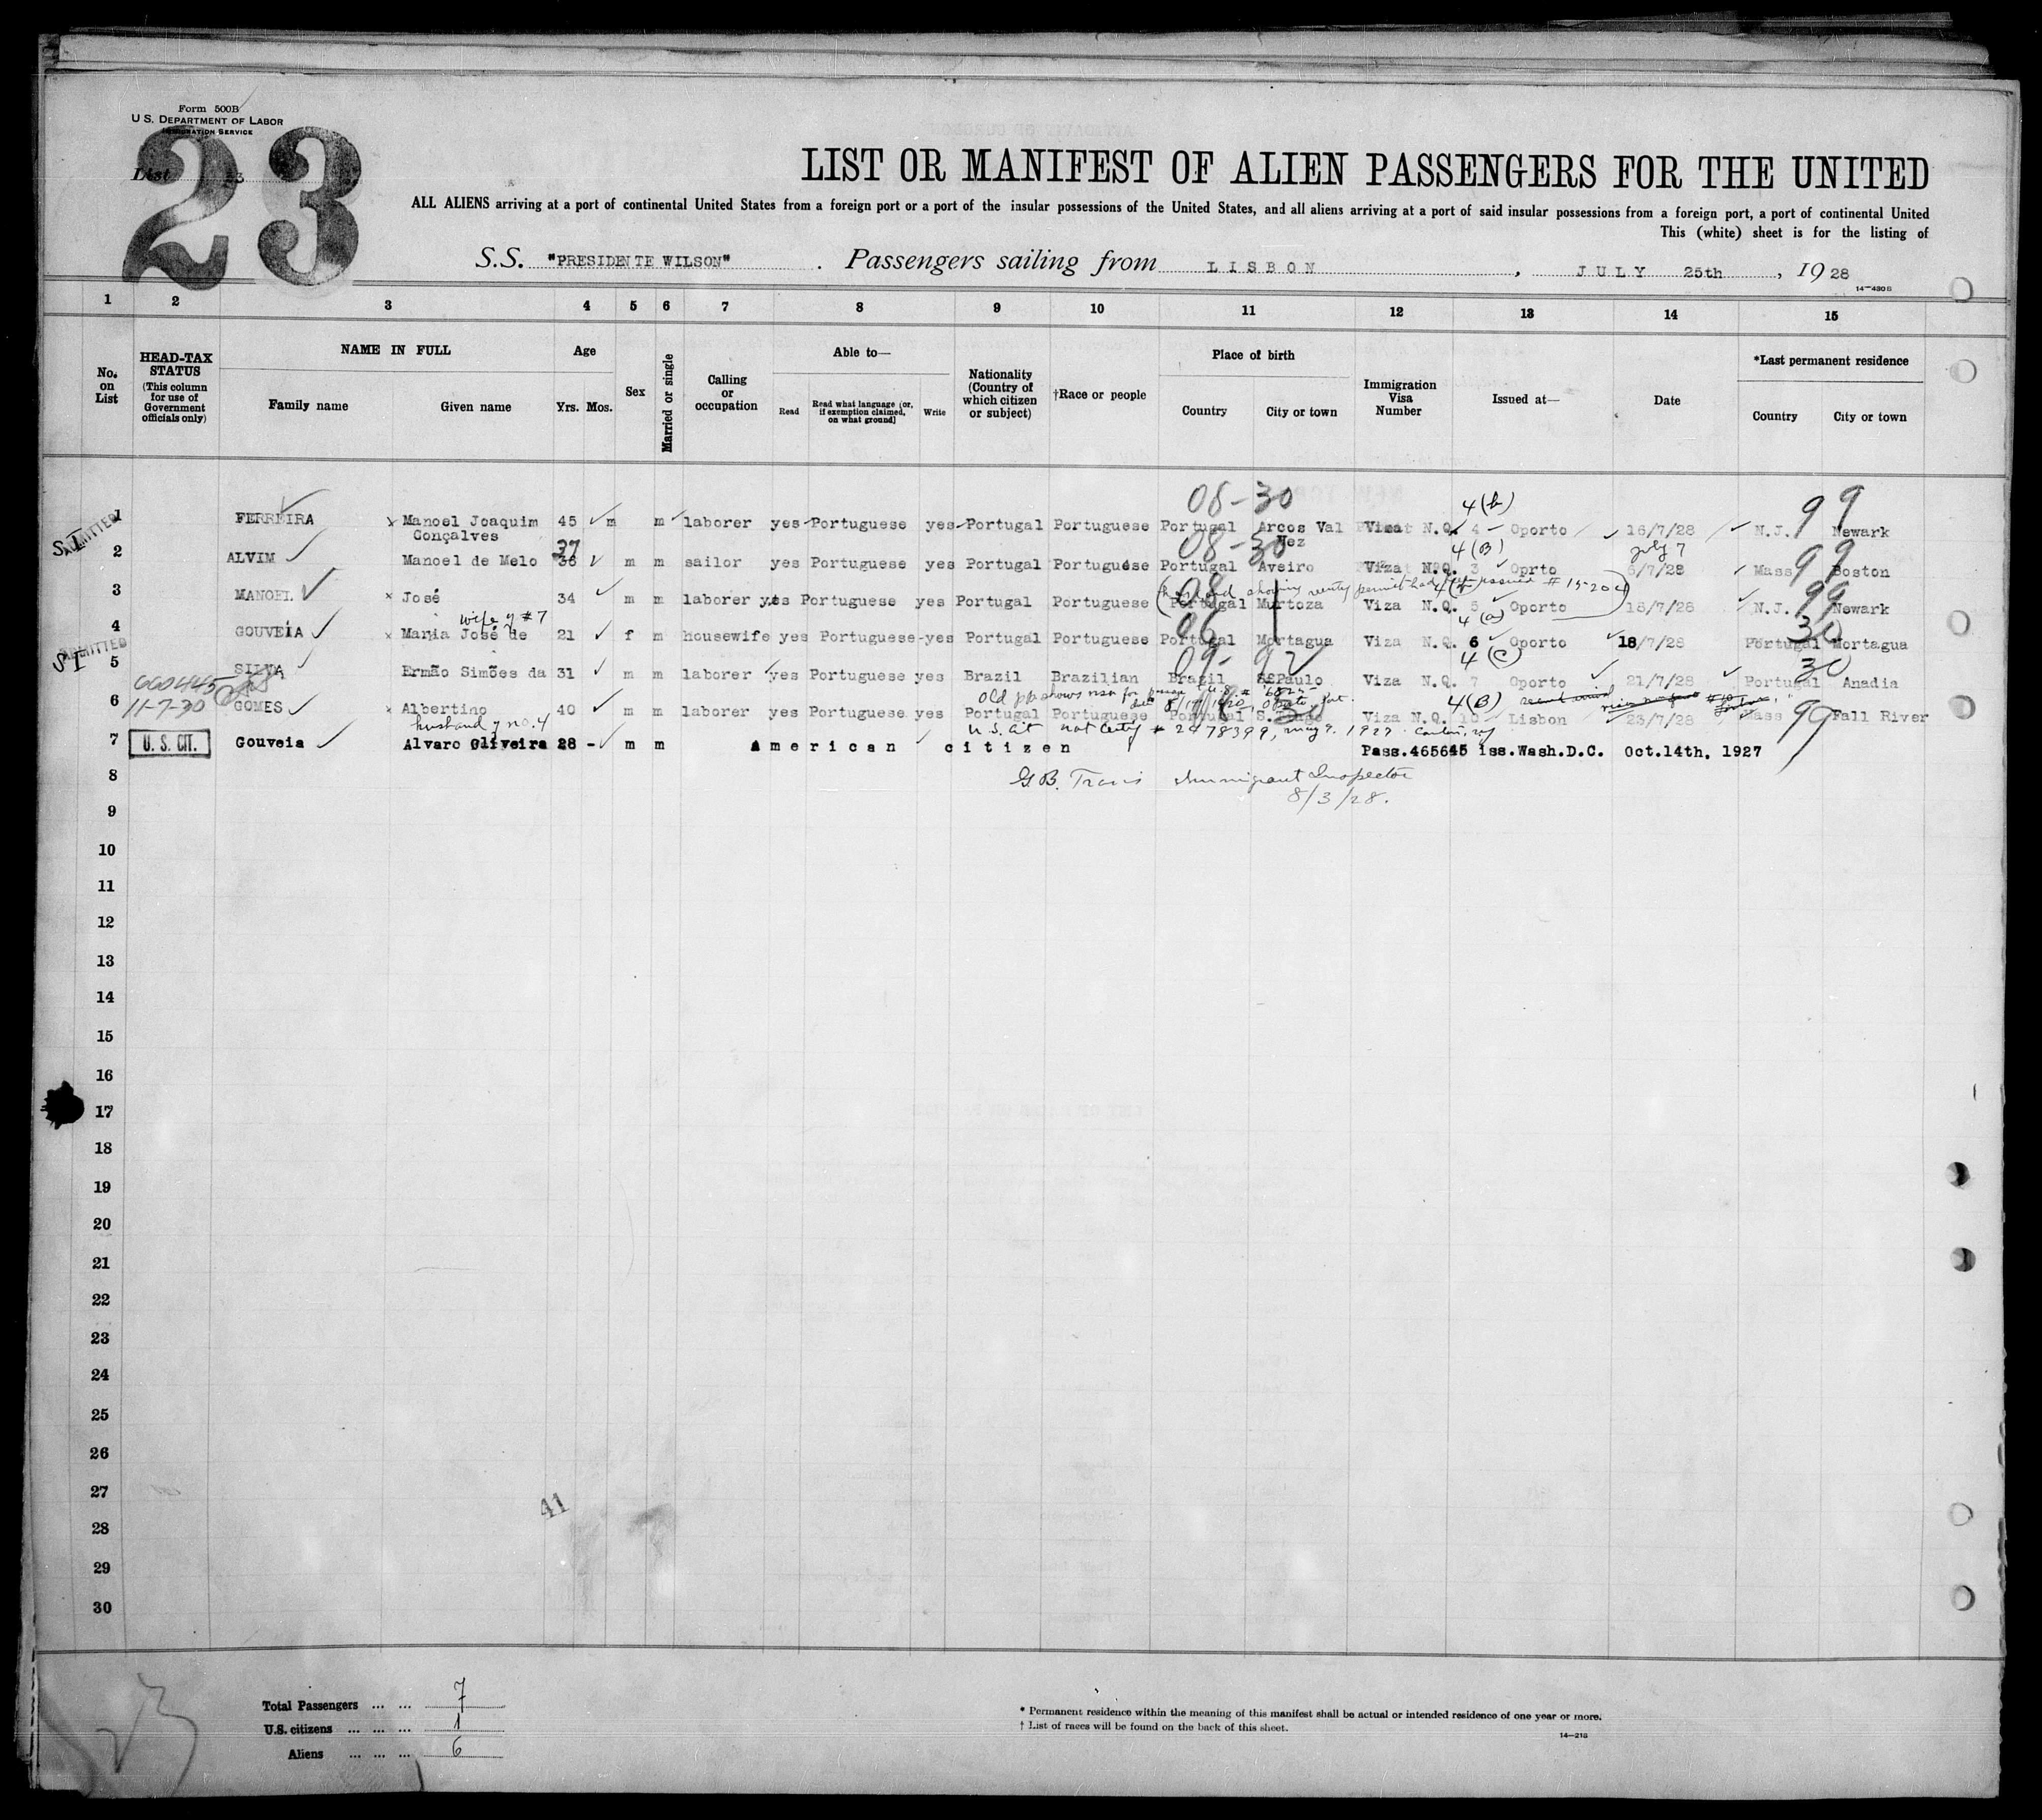 Form 500B
U. S. DEPARTMENT OF LABOR
IMMIGRATION SERVICE
23
List 23
LIST OR MANIFEST OF ALIEN PASSENGERS FOR THE UNITED
ALL ALIENS arriving at a port of continental United States from a foreign port or a port of the insular possessions of the United States, and all aliens arriving at a port of said insular possessions from a foreign port, a port of continental United
This (white) sheet is for the listing of
S.S. "PRESIDENTE WILSON". Passengers sailing from LISBON, JULY 25th, 1928
14-430B
1 2 3 4 5 6 7 8 9 10 11 12 13 14 15
No. on List
HEAD-TAX STATUS (This column for use of Government officials only)
NAME IN FULL
Family name Given name
Age
Yrs. Mos.
Sex
Married or single
Calling or occupation
Able to—
Read Read what language [or, if exemption claimed, on what ground] Write
Nationality (Country of which citizen or subject)
†Race or people
Place of birth
Country City or town
Immigration Visa Number
Issued at—
Date
*Last permanent residence
Country City or town
08-30 4(b) 99
1 FERREIRA Manoel Joaquim 45 m m laborer yes Portuguese yes Portugal Portuguese Portugal Arcos Val Viza N.Q. 4 Oporto 16/7/28 N.J. Newark
ADMITTED
S I
Gonçalves Vez
37 08-30 4(B) July 7 99
2 ALVIM Manoel de Melo 36 m m sailor yes Portuguese yes Portugal Portuguese Portugal Aveiro Viza N.Q. 3 Oprto 6/7/28 Mass Boston
3 MANOEL José 34 m m laborer yes Portuguese yes Portugal Portuguese Portugal Murtoza Viza N.Q. 5 Oporto 18/7/28 N.J. Newark
99
wife of #7 4(a) 30
4 GOUVEIA Maria José de 21 f m housewife yes Portuguese yes Portugal Portuguese Portugal Mortagua Viza N.Q. 6 Oporto 18/7/28 Portugal Mortagua
ADMITTED
S I
09-92 4(C) 30
5 SILVA Ermão Simões da 31 m m laborer yes Portuguese yes Brazil Brazilian Brazil S.Paulo Viza N.Q. 7 Oporto 21/7/28 Portugal Anadia
11-7-30
4(B) 99
6 GOMES Albertino 40 m m laborer yes Portuguese yes Portugal Portuguese Portugal Viza N.Q. 10 Lisbon 23/7/28 Mass Fall River
husband of no. 4 U.S. Cit #2478399, May 9, 1927
7 U. S. CIT. Gouveia Alvaro Oliveira 28 - m m American citizen Pass.465645 iss.Wash.D.C. Oct.14th, 1927
8 G. B. Travis Immigrant Inspector
8/3/28.
9
10
11
12
13
14
15
16
17
18
19
20
21
22
23
24
25
26
27
41
28
29
30
Total Passengers ... ... 7
U.S. citizens ... ... ... 1
Aliens ... ... ... 6
* Permanent residence within the meaning of this manifest shall be actual or intended residence of one year or more.
† List of races will be found on the back of this sheet.
14-218
23